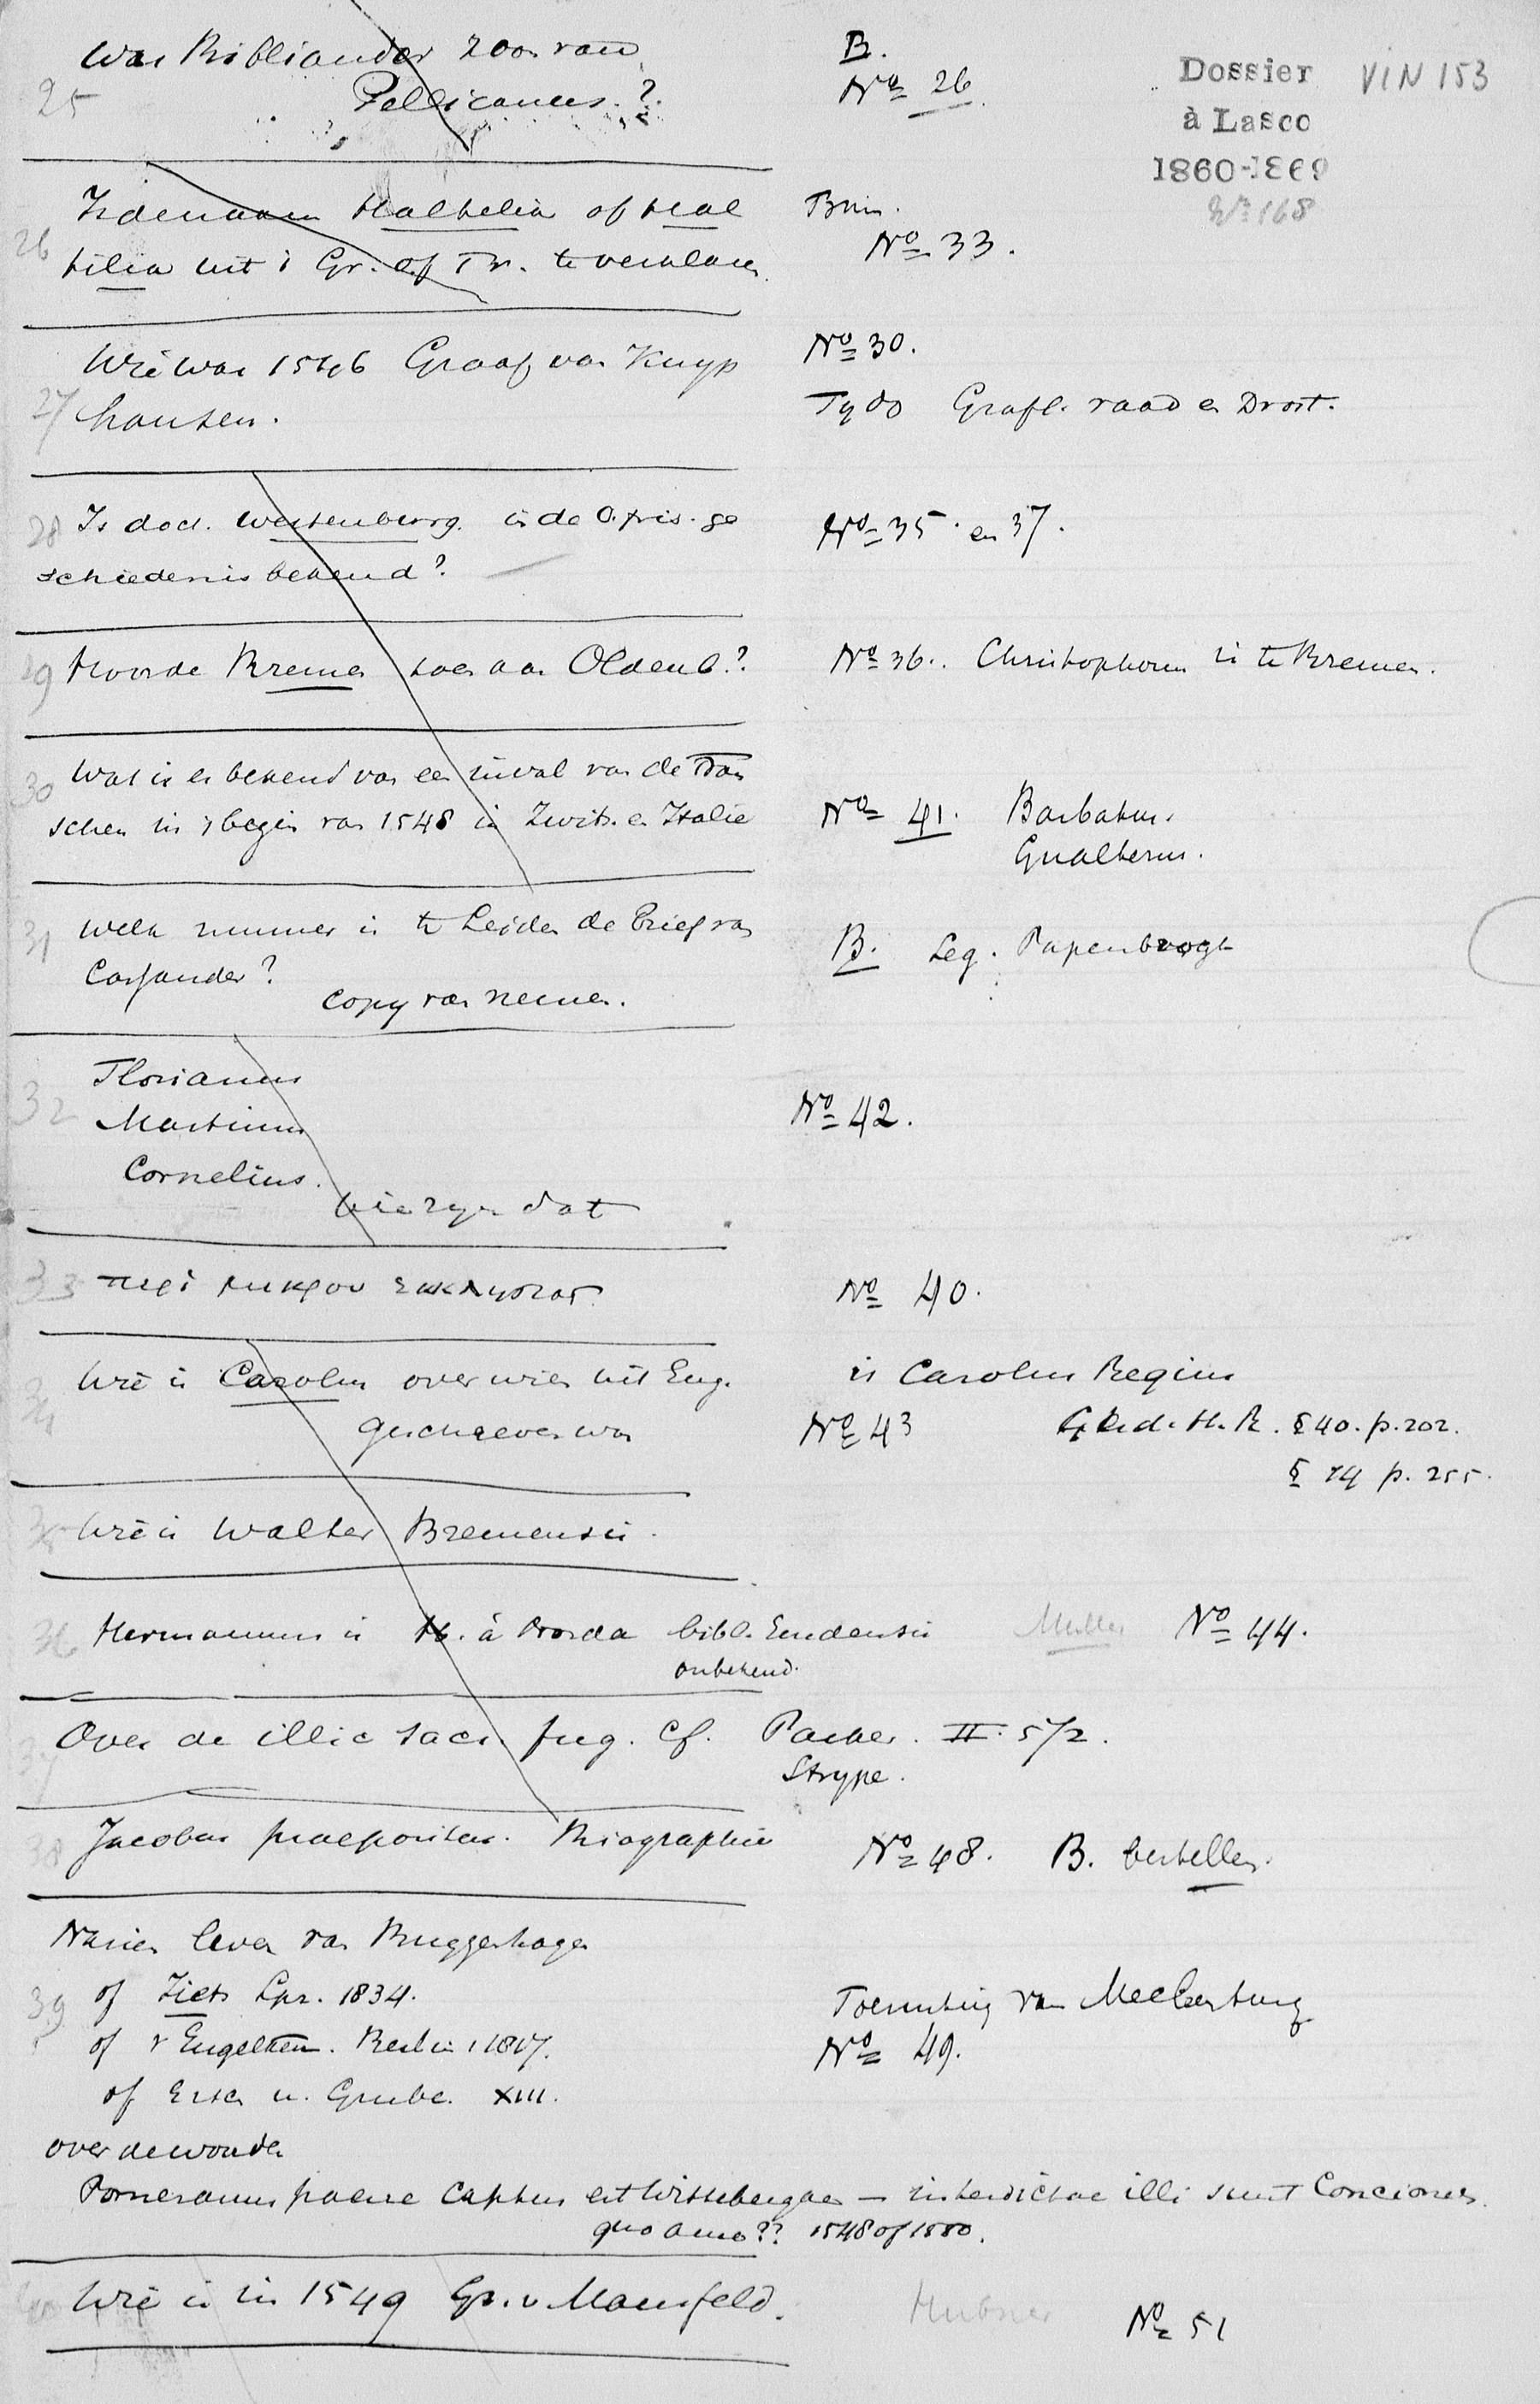 Dossier VIN 153
à Lasco
1860-1869
No 168
25 Was Bibliander zoon van B.
Pellicanus? No 26
26 Is de naam Halhelia of Hal Brin.
tilia uit 't Gr. of Tr. te verklaren No 33.
27 Wie was 1546 Graaf van Kuyp No 30.
hausen. Tydo Grafl. raad en Drost.
28 Is doct. Westenburg in de O. Fris. ge No 35 en 37.
schiedenis bekend?
29 Hoorde Bremen toen aan Oldenb.? No 36. Christophorus is te Bremen.
30 Wat is er bekend van een inval van de
schen in 't begin van 1548 in Zwits. en Italie No 41. Barbatus.
Gualterus.
31 Welk nummer is te Leiden de brief van B. Leg. Papenbrogh
Cassander?
copy van nemen.
32 Florianus
Martinus No 42.
Cornelius.
wie zyn dat
33 περὶ μικρου εκκλησιας No 40.
34 Wie is Carolus over wien uit Eng. is Carolus Regius
geschreven was No 43 Ger. d. H. R. § 40. p. 202.
§ 74 p. 255.
35 Wie is Walter Bremensis.
36 Hermannus is H. à bibl. Emdensis Muller No 44.
onbekend.
37 Over de illic sacr. fug. cf. Parker. II. 572.
Strype.
38 Jacobus praepositus. Biographie No 48. B. bestellen.
Nazien leven van Buggenhagen
39 of Zietz Lpz. 1834. Toezending van Meclenburg
of v Engelken. Berlin 1817. No 49.
of Ersch u. Grube. XIII.
over de woorden
Pomeranus paene captus est Wittebergae — interdictae illi sunt Conciones.
quo anno?? 1548 of 1550.
40 Wie is in 1549 Gr. v. Mansfeld. Hubner No 51